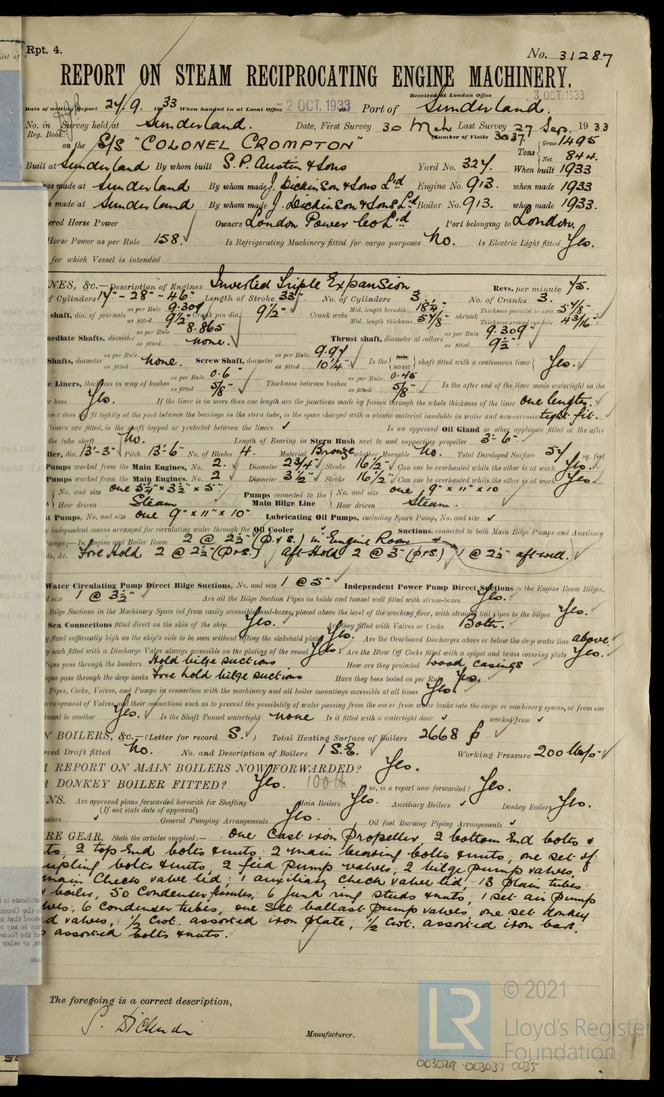 Rpt. 4.
No. 31287
REPORT ON STEAM RECIPROCATING ENGINE MACHINERY.
Received at London Office 3 OCT. 1933
Date of writing Report 24/9. 1933 When handed in at Local Office - 2 OCT. 1933 Port of Sunderland.
No. in Survey held at Sunderland. Date, First Survey 30 Mch Last Survey 27 Sep. 1933
Reg. Book. (Number of Visits 37.
on the S/S "COLONEL CROMPTON" Tons Gross 1495 Net 844.
Built at Sunderland By whom built S.P. Austin & Sons Yard No. 327. When built 1933
es made at Sunderland By whom made J. Dickinson & Sons Ld Engine No. 913. when made 1933
s made at Sunderland By whom made J. Dickinson & Sons Ld Boiler No. 913. when made 1933.
ered Horse Power Owners London Power Co Ld. Port belonging to London.
Horse Power as per Rule 158. Is Refrigerating Machinery fitted for cargo purposes No. Is Electric Light fitted Yes.
for which Vessel is intended
NES, &c.—Description of Engines Inverted Triple Expansion Revs. per minute 75.
of Cylinders 17" - 28" - 46" Length of Stroke 33" No. of Cylinders 3 No. of Cranks 3.
shaft, dia. of journals as per Rule 9.309 as fitted 9½" Crank pin dia. 9½" Crank webs Mid. length breadth 18¾" Mid. length thickness 5⅞" shrunk Thickness parallel to axis 5⅞" Thickness around eyehole 4 3/16"
ediate Shafts, diameter as per Rule 8.865 as fitted none. Thrust shaft, diameter at collars as per Rule 9.309" as fitted 9½"
Shafts, diameter as per Rule none. as fitted Screw Shaft, diameter as per Rule 9.97 as fitted 10¼" Is the screw shaft fitted with a continuous liner Yes.
e Liners, thickness in way of bushes as per Rule 0.6" as fitted 5/8" Thickness between bushes as per Rule 0.45 as fitted 5/8" Is the after end of the liner made watertight in the
er boss Yes. If the liner is in more than one length are the junctions made by fusion through the whole thickness of the liner one length.
iner does not fit tightly at the part between the bearings in the stern tube, is the space charged with a plastic material insoluble in water and non-corrosive tight fit.
liners are fitted, is the shaft lapped or protected between the liners Is an approved Oil Gland or other appliance fitted at the after
the tube shaft No. Length of Bearing in Stern Bush next to and supporting propeller 3'-6"
ller, dia. 13'-3" Pitch 13'-6" No. of Blades 4. Material Bronze whether Moveable No. Total Developed Surface 54 sq. feet
Pumps worked from the Main Engines, No. 2. Diameter 2¾" Stroke 16½" Can one be overhauled while the other is at work Yes.
Pumps worked from the Main Engines, No. 2 Diameter 3½" Stroke 16½" Can one be overhauled while the other is at work Yes
No. and size one 5¼" × 3½" × 5" Pumps connected to the No. and size one 9" × 11" × 10
How driven Steam Main Bilge Line How driven Steam.
st Pumps, No. and size one 9" × 11" × 10" Lubricating Oil Pumps, including Spare Pump, No. and size
independent means arranged for circulating water through the Oil Cooler Suctions, connected to both Main Bilge Pumps and Auxiliary
umps;—In Engine and Boiler Room 2 @ 2½" (P. & S.) in Engine Room
ds, &c. Fore Hold 2 @ 2½" (P&S.) Aft Hold 2 @ 3" (P&S.) 1 @ 2½" aft well.
Water Circulating Pump Direct Bilge Suctions, No. and size 1 @ 5" Independent Power Pump Direct Suctions to the Engine Room Bilges,
size 1 @ 3½" Are all the Bilge Suction Pipes in holds and tunnel well fitted with strum-boxes Yes.
Bilge Suctions in the Machinery Space led from easily accessible mud-boxes, placed above the level of the working floor, with straight tail pipes to the bilges Yes.
Sea Connections fitted direct on the skin of the ship Yes. Are they fitted with Valves or Cocks Both.
y fixed sufficiently high on the ship's side to be seen without lifting the stokehold plates Yes. Are the Overboard Discharges above or below the deep water line above
y each fitted with a Discharge Valve always accessible on the plating of the vessel Yes. Are the Blow Off Cocks fitted with a spigot and brass covering plate Yes.
ipes pass through the bunkers Hold bilge suctions How are they protected wood casings
pes pass through the deep tanks Fore hold bilge suctions Have they been tested as per Rule Yes.
Pipes, Cocks, Valves, and Pumps in connection with the machinery and all boiler mountings accessible at all times Yes.
rrangement of Valves and their connections such as to prevent the possibility of water passing from the sea or from water tanks into the cargo or machinery spaces, or from one
tment to another Yes. Is the Shaft Tunnel watertight none Is it fitted with a watertight door worked from
N BOILERS, &c.—(Letter for record S.) Total Heating Surface of Boilers 2668
rced Draft fitted No. No. and Description of Boilers 1 S.E. Working Pressure 200 lbs
A REPORT ON MAIN BOILERS NOW FORWARDED? Yes.
A DONKEY BOILER FITTED? Yes. 100 If so, is a report now forwarded? Yes.
NS. Are approved plans forwarded herewith for Shafting Yes. Main Boilers Yes. Auxiliary Boilers Donkey Boilers Yes.
(If not state date of approval)
General Pumping Arrangements Yes. Oil fuel Burning Piping Arrangements
RE GEAR. State the articles supplied:— One cast iron propeller 2 bottom end bolts &
ts, 2 top end bolts & nuts, 2 main bearing bolts & nuts, one set of
upling bolts & nuts, 2 feed pump valves, 2 bilge pump valves,
main check valve lid, 1 auxiliary check valve lid, 13 plain tubes
boiler, 50 condenser ferrules, 6 junk ring studs & nuts, 1 set air pump
lves, 6 condenser tubes, one set ballast pump valves, one set donkey
d valves, ½ cwt. assorted iron plate, ½ cwt. assorted iron bars,
assorted bolts & nuts.
The foregoing is a correct description,
Manufacturer.
LR © 2021
Lloyd's Register
Foundation
003029-003037-0035